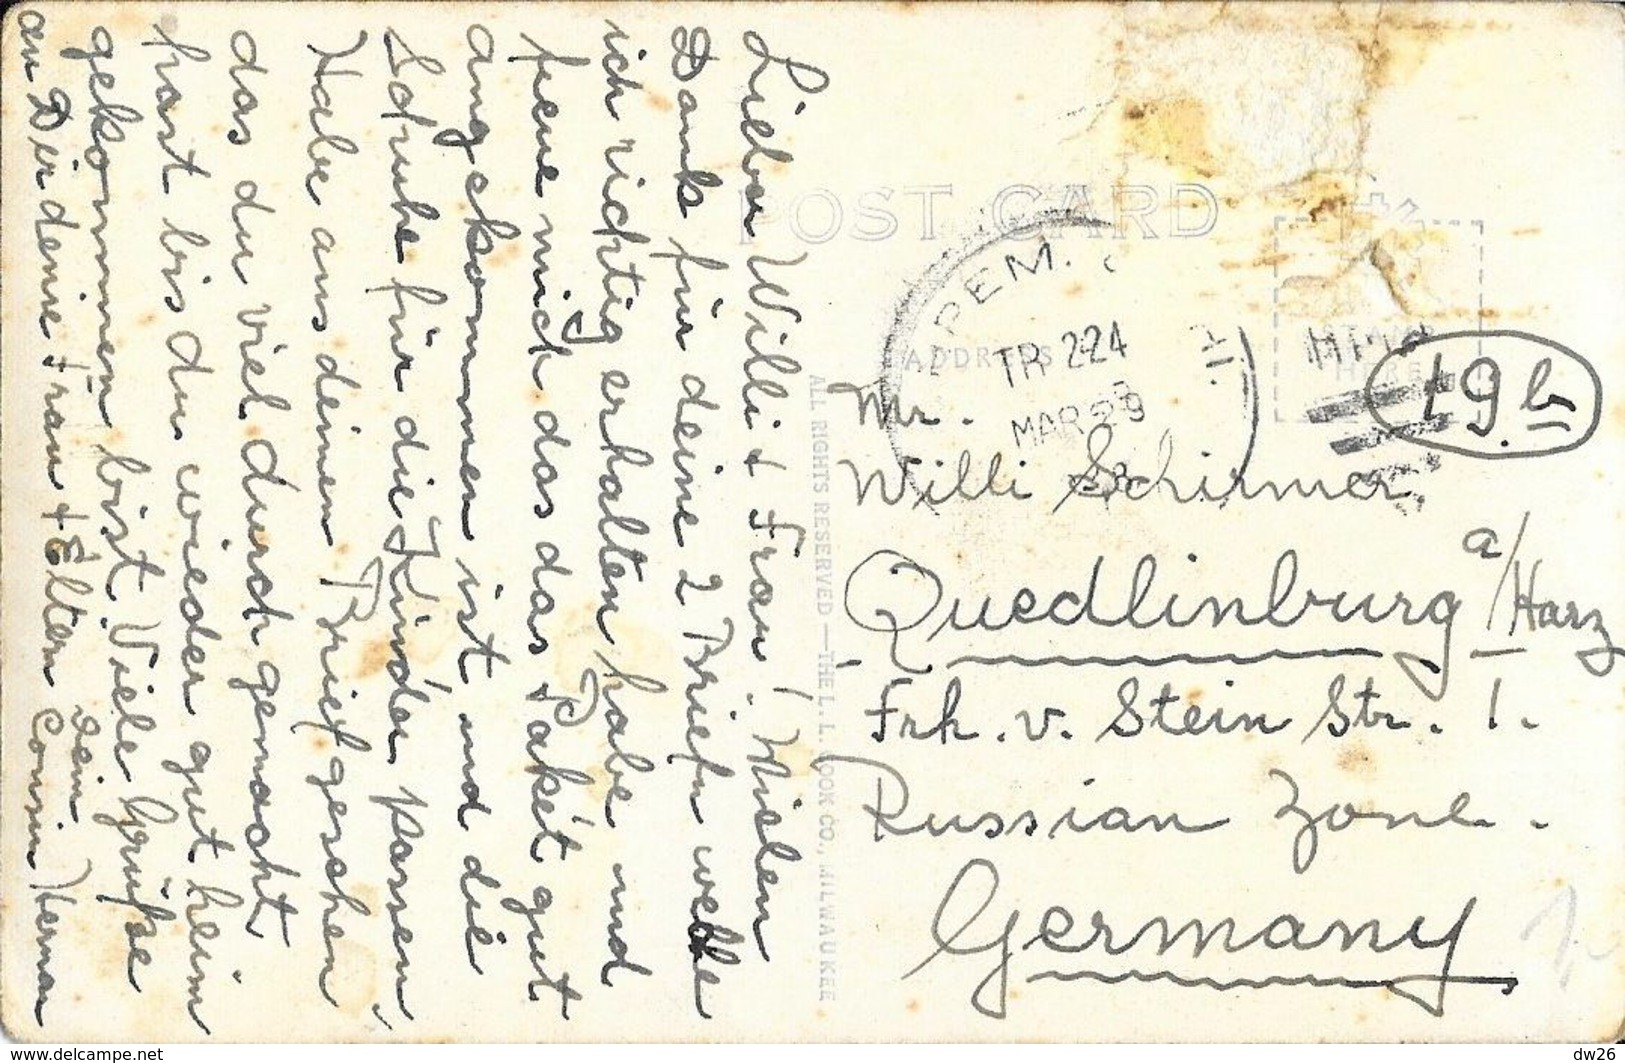 Lieber Willi & Frau! Vielen
Dank für deine 2 Briefe welche
ich richtig erhalten habe und
freue mich das das Pakét gut
angekommen ist und die
Schuhe für die Kinder passen,
Habe aus deinen Brief gesehen
das du viel durch gemacht
hast bis du wieder gut heim
gekommen bist. Viele Grüße
an Dir deine Frau & Eltern
Dein
Cousin Herman
POST CARD
ADDRESS
PEM.
TR 224
MAR 29
STAMP
HERE
ALL RIGHTS RESERVED — THE L. L. COOK CO., MILWAUKEE
19.b
Mr.
Willi Schirmer.
Quedlinburg a/Harz
Frh. v. Stein Str. 1.
Russian Zone.
Germany
delcampe.net
dw26